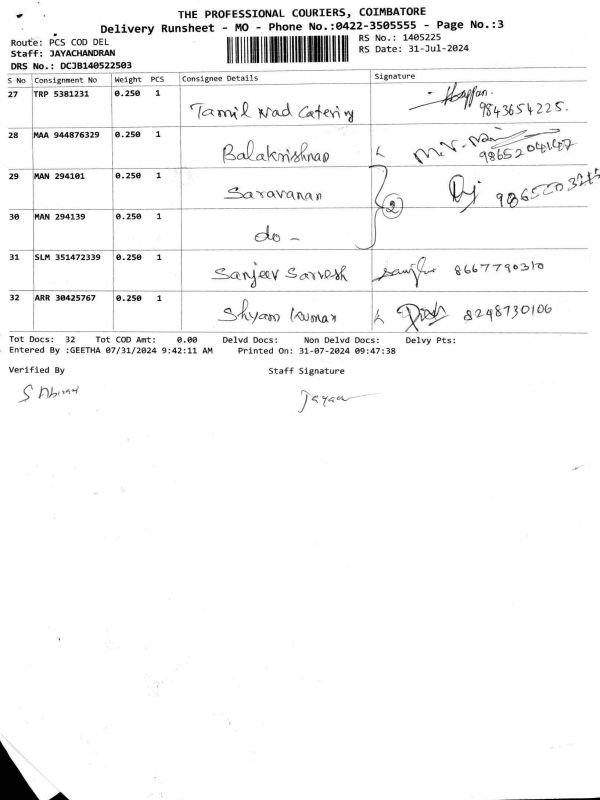 THE PROFESSIONAL COURIERS, COIMBATORE
Delivery Runsheet - MO - Phone No.:0422-3505555 - Page No.:3
Route: PCS COD DEL RS No.: 1405225
Staff: JAYACHANDRAN RS Date: 31-Jul-2024
DRS No.: DCJB140522503
S No Consignment No Weight PCS Consignee Details Signature
27 TRP 5381231 0.250 1 Tamil Nad Catering 9843654225.
28 MAA 944876329 0.250 1 Balakrishnan M.V. 9865204147
29 MAN 294101 0.250 1 Saravanan
30 MAN 294139 0.250 1 do - 2
31 SLM 351472339 0.250 1 Sanjeev Sarvesh 8667790310
32 ARR 30425767 0.250 1 Shyam Kumar 8248730106
Tot Docs: 32 Tot COD Amt: 0.00 Delvd Docs: Non Delvd Docs: Delvy Pts:
Entered By :GEETHA 07/31/2024 9:42:11 AM Printed On: 31-07-2024 09:47:38
Verified By Staff Signature